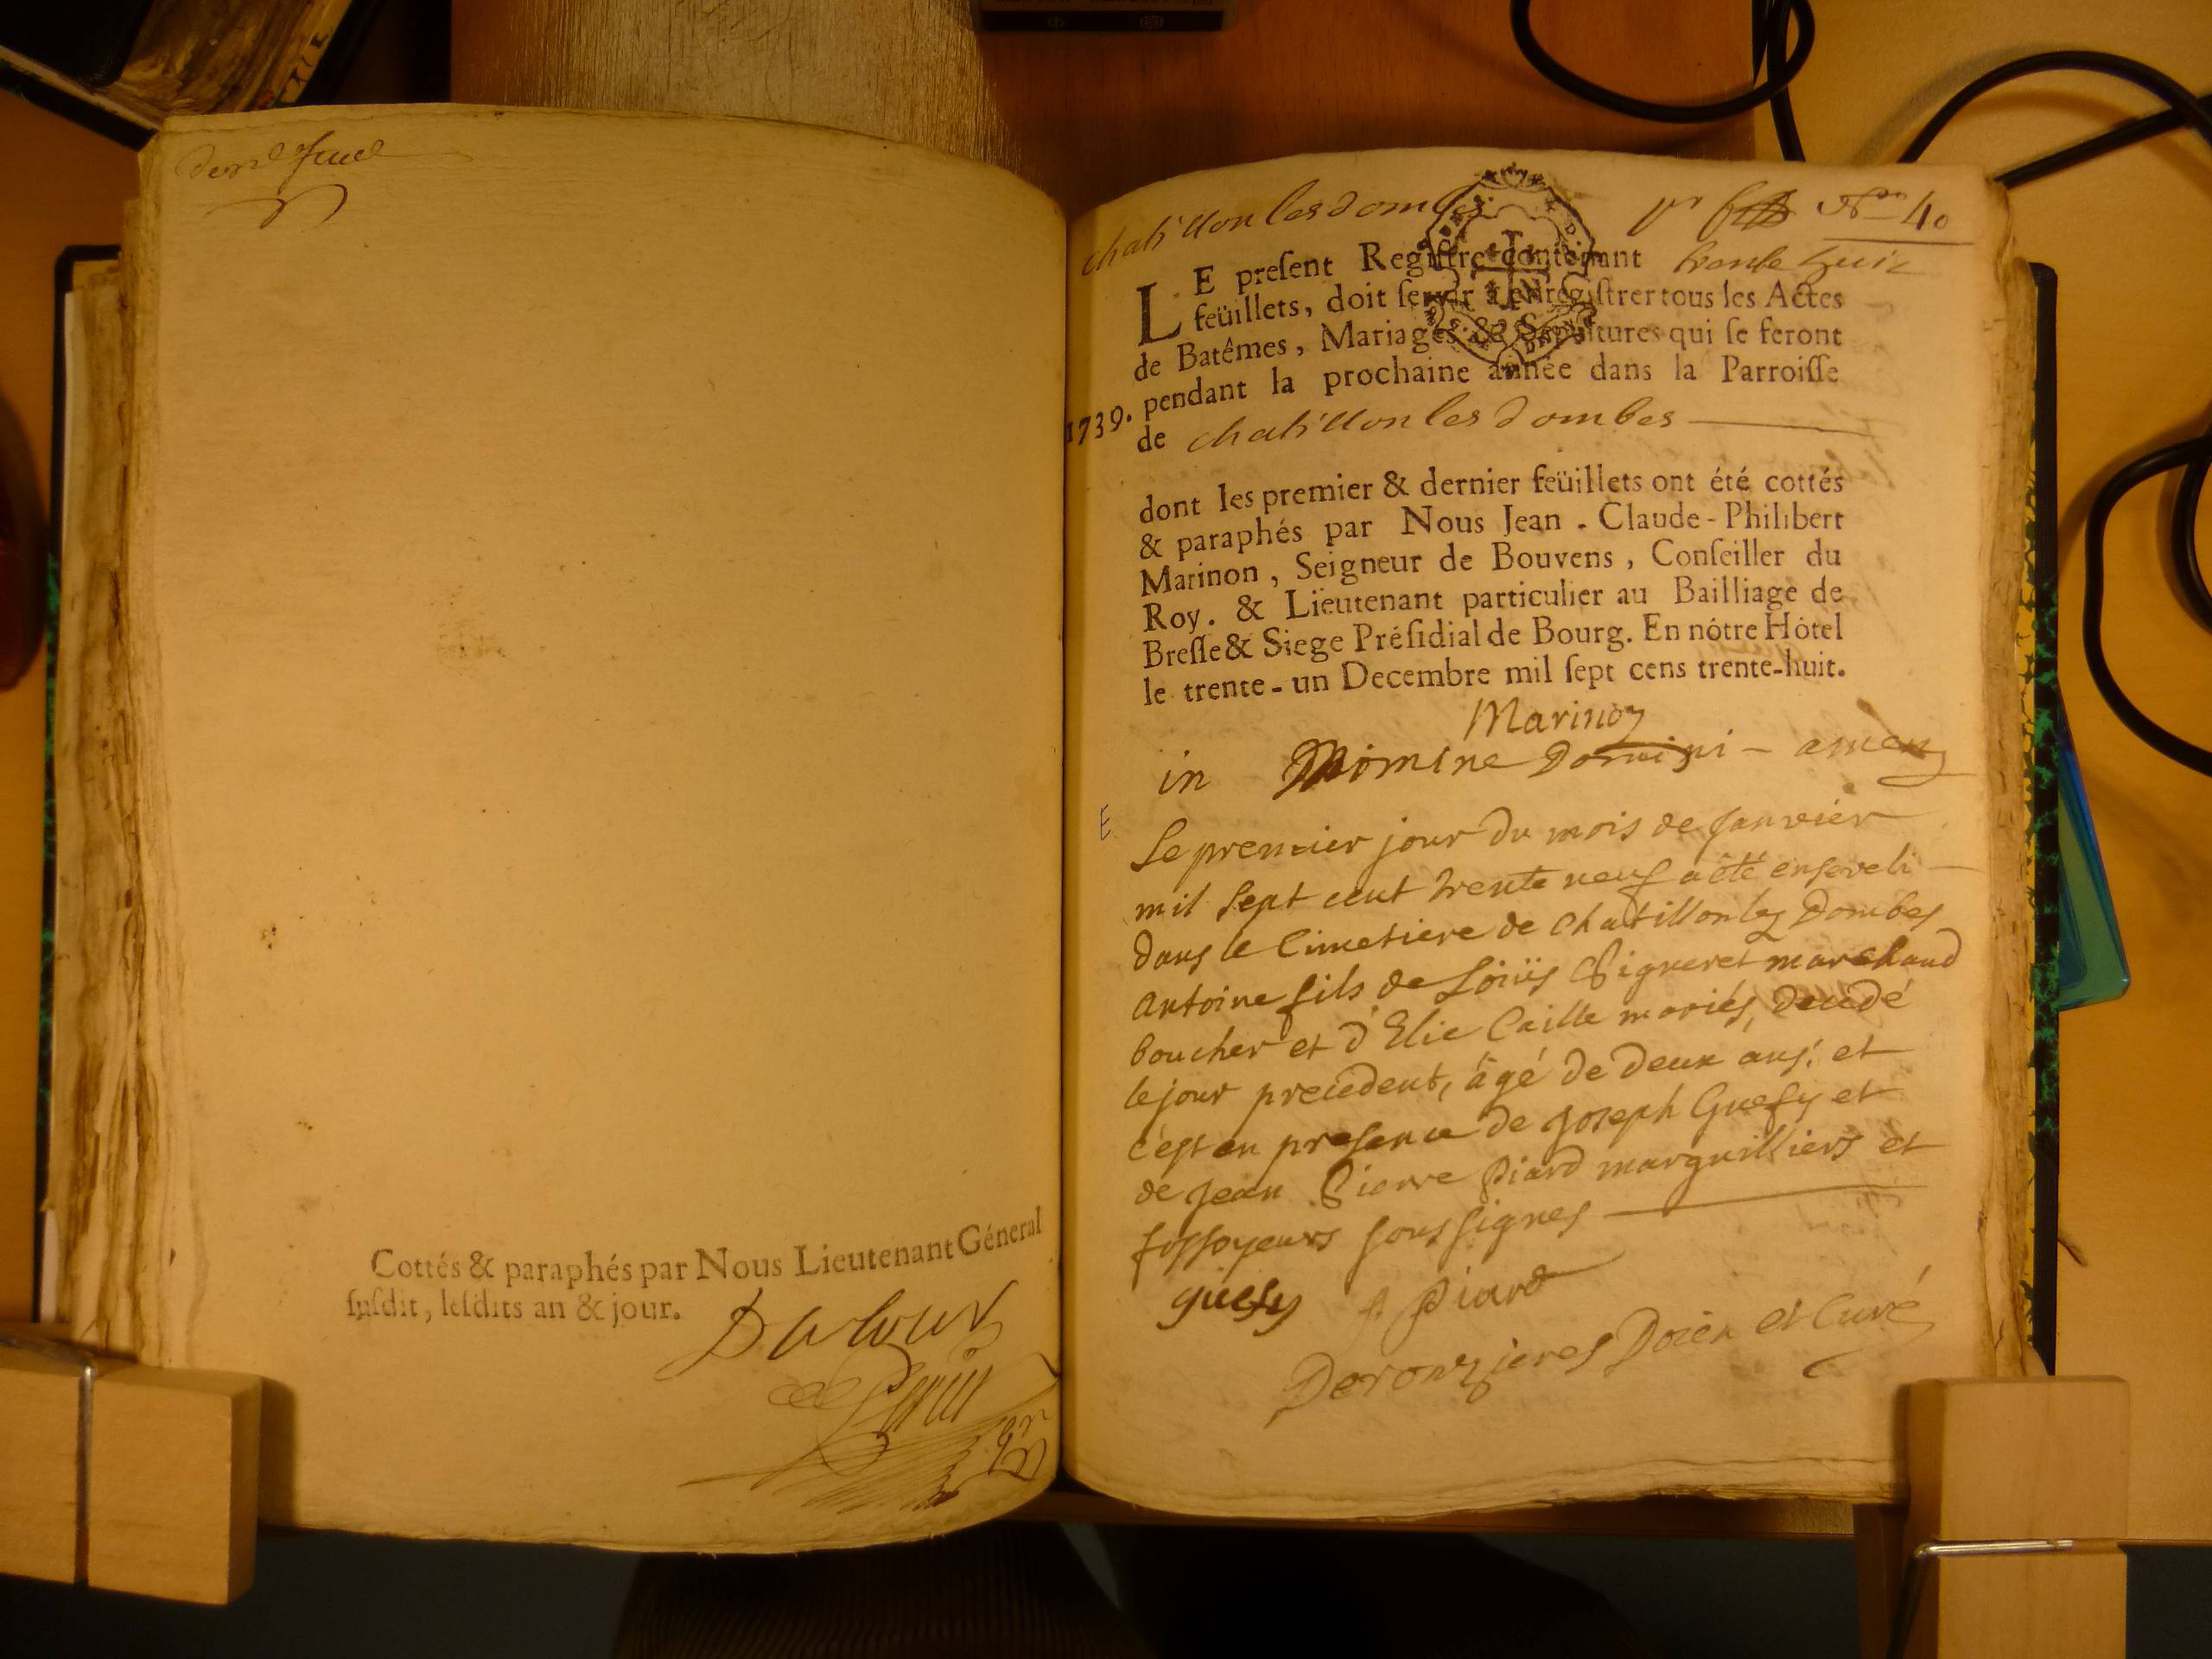 Cottés & paraphés par Nous Lieutenant Géneral
ſuſdit, leſdits an & jour.
chatillon les dombes
Nº 40
LE preſent Regiſtre contenant trente huit
feüillets, doit ſervir à enregiſtrer tous les Actes
de Batêmes, Mariages & Sepultures qui ſe feront
pendant la prochaine année dans la Parroiſſe
1739.
de chatillon les dombes
dont les premier & dernier feüillets ont été cottés
& paraphés par Nous Jean-Claude-Philibert
Marinon, Seigneur de Bouvens, Conſeiller du
Roy. & Lieutenant particulier au Bailliage de
Breſſe & Siege Préſidial de Bourg. En nôtre Hôtel
le trente-un Decembre mil ſept cens trente-huit.
Marinon
in Nomine Domini - amen
E
Le premier jour du mois de Janvier
mil Sept cent trente neuf a été enseveli
dans le Cimetiere de Chatillon les Dombes
Antoine fils de Loüis Pigneret marchand
boucher et d'Elie Caille mariés, decedé
le jour precedent, âgé de deux ans; et
c'est en presence de Joseph Guesy et
de Jean Pierre Piard marguilliers et
fossoyeurs soussignes
guesy
Piard
Deronzieres Doien et Curé